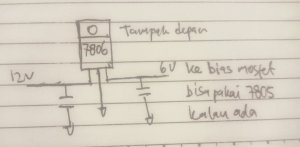 Tampak depan
7806
12V
6V ke bias mosfet
bisa pakai 7805
kalau ada